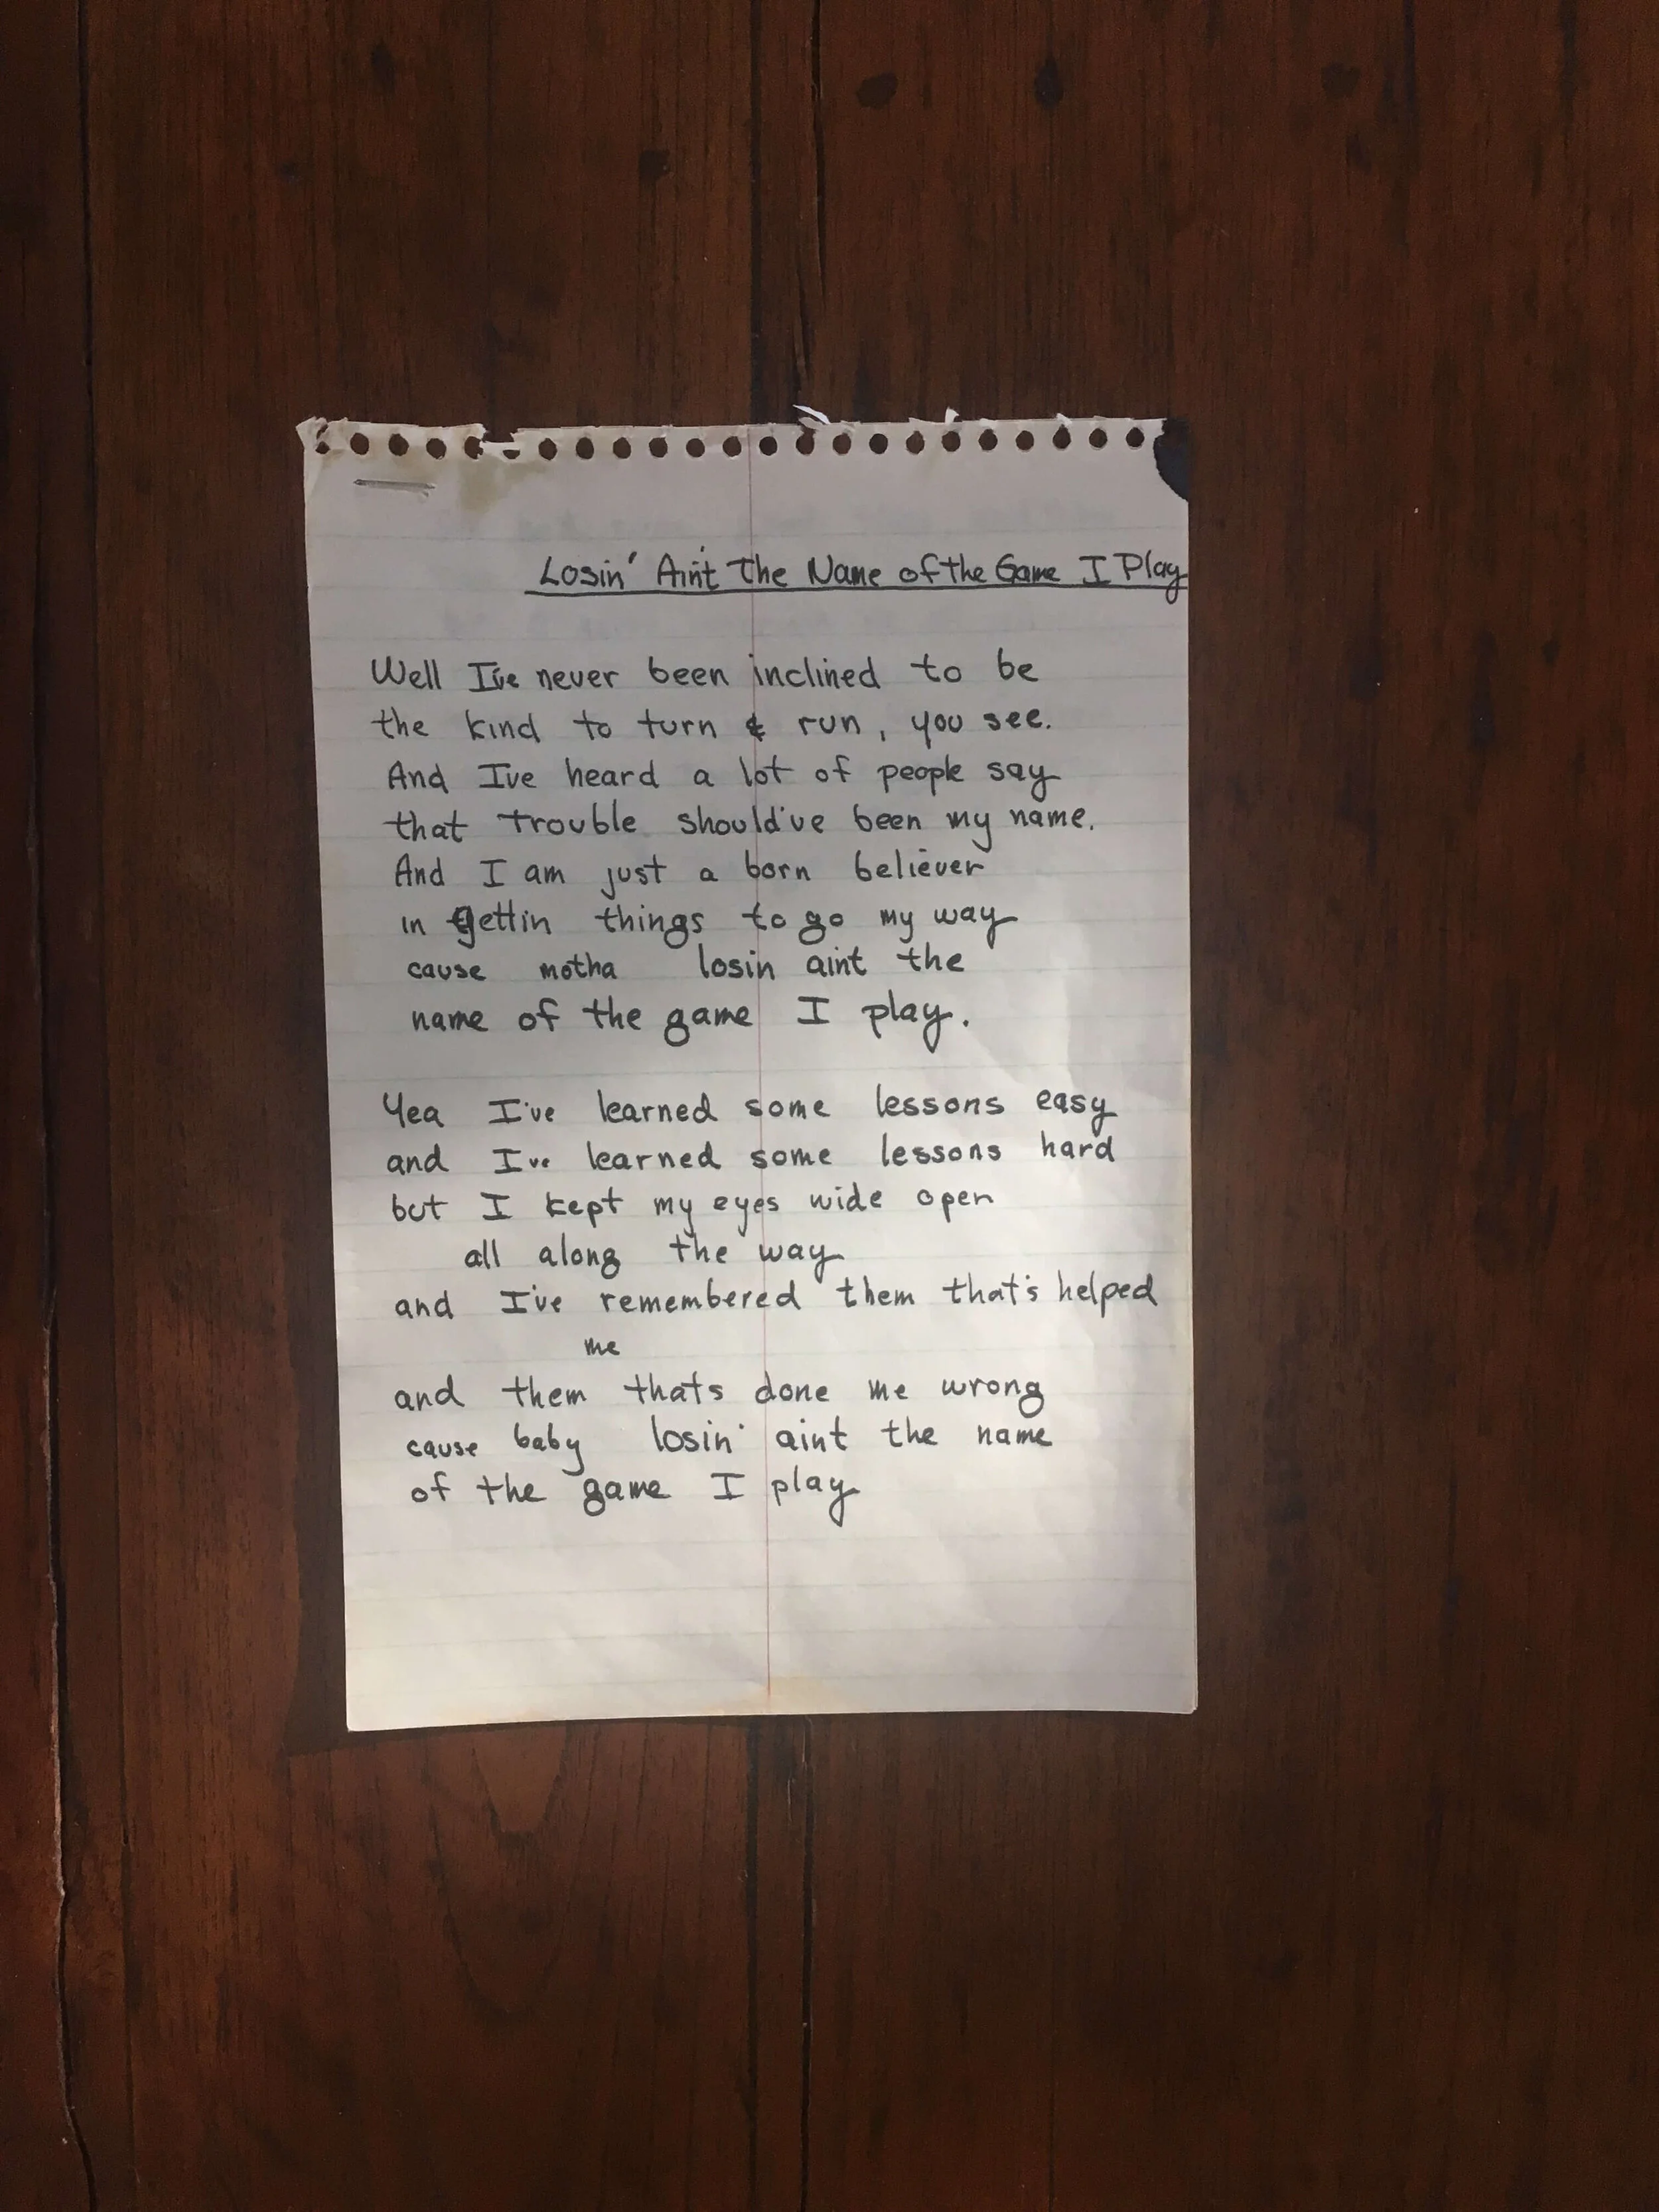 Losin' Ain't The Name of the Game I Play
Well I've never been inclined to be
the kind to turn & run, you see.
And I've heard a lot of people say
that trouble should've been my name.
And I am just a born believer
in gettin things to go my way
cause motha losin aint the
name of the game I play.
Yea I've learned some lessons easy
and I've learned some lessons hard
but I kept my eyes wide open
all along the way
and I've remembered them that's helped
me
and them thats done me wrong
cause baby losin' aint the name
of the game I play